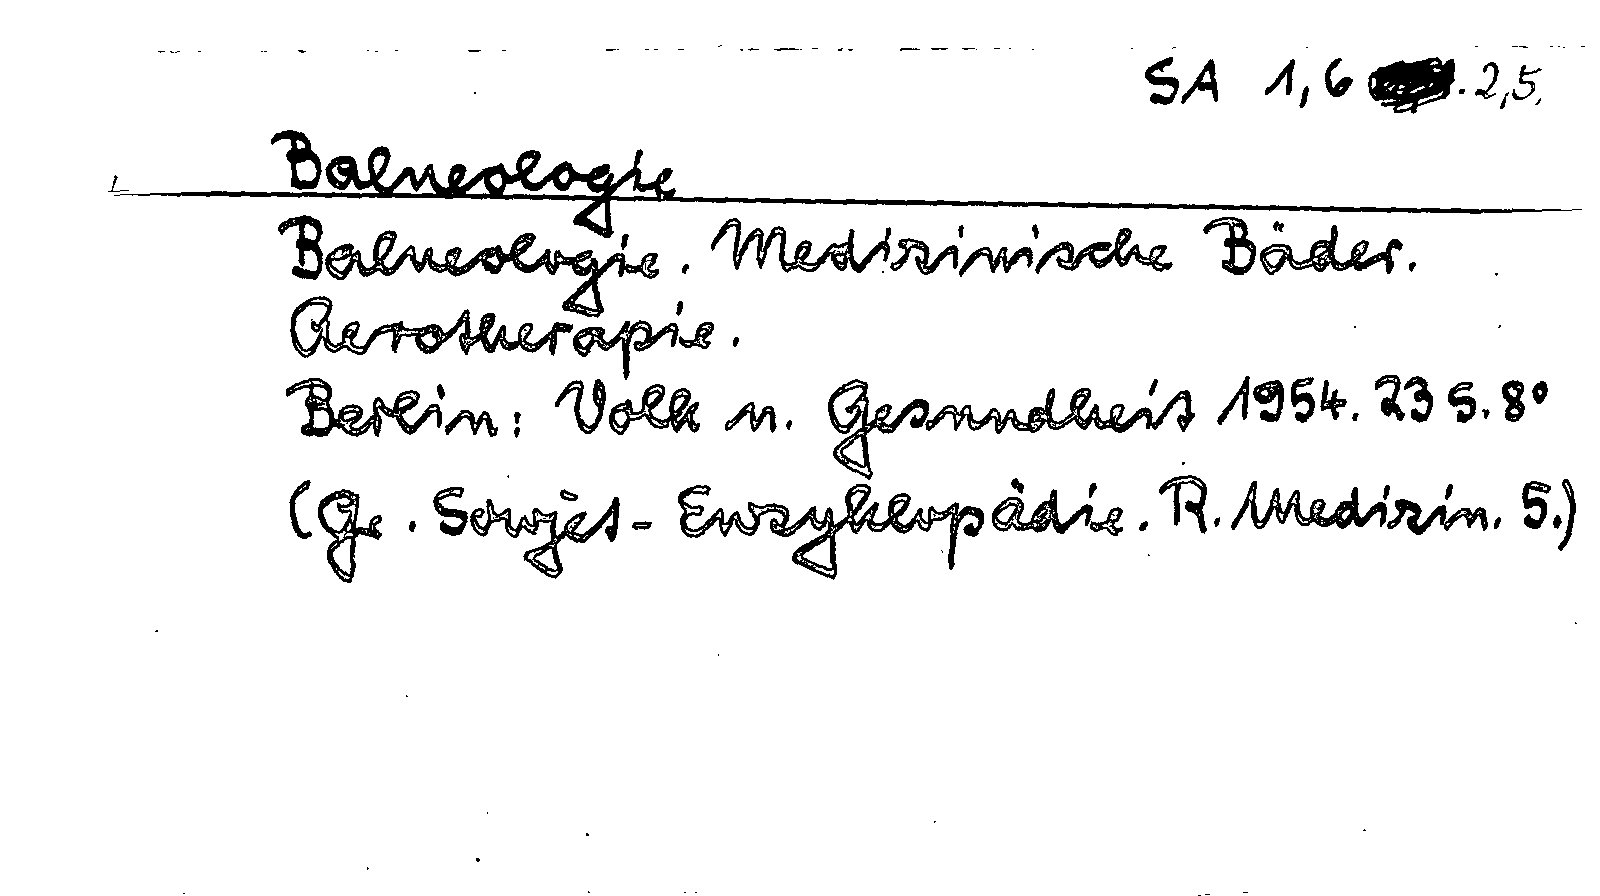 SA 1,6 . 2,5.
Balneologie
Balneologie. Medizinische Bäder.
Aerotherapie.
Berlin: Volk u. Gesundheit 1954. 23 S. 8°
(Gr. Sowjet-Enzyklopädie. R. Medizin. 5.)